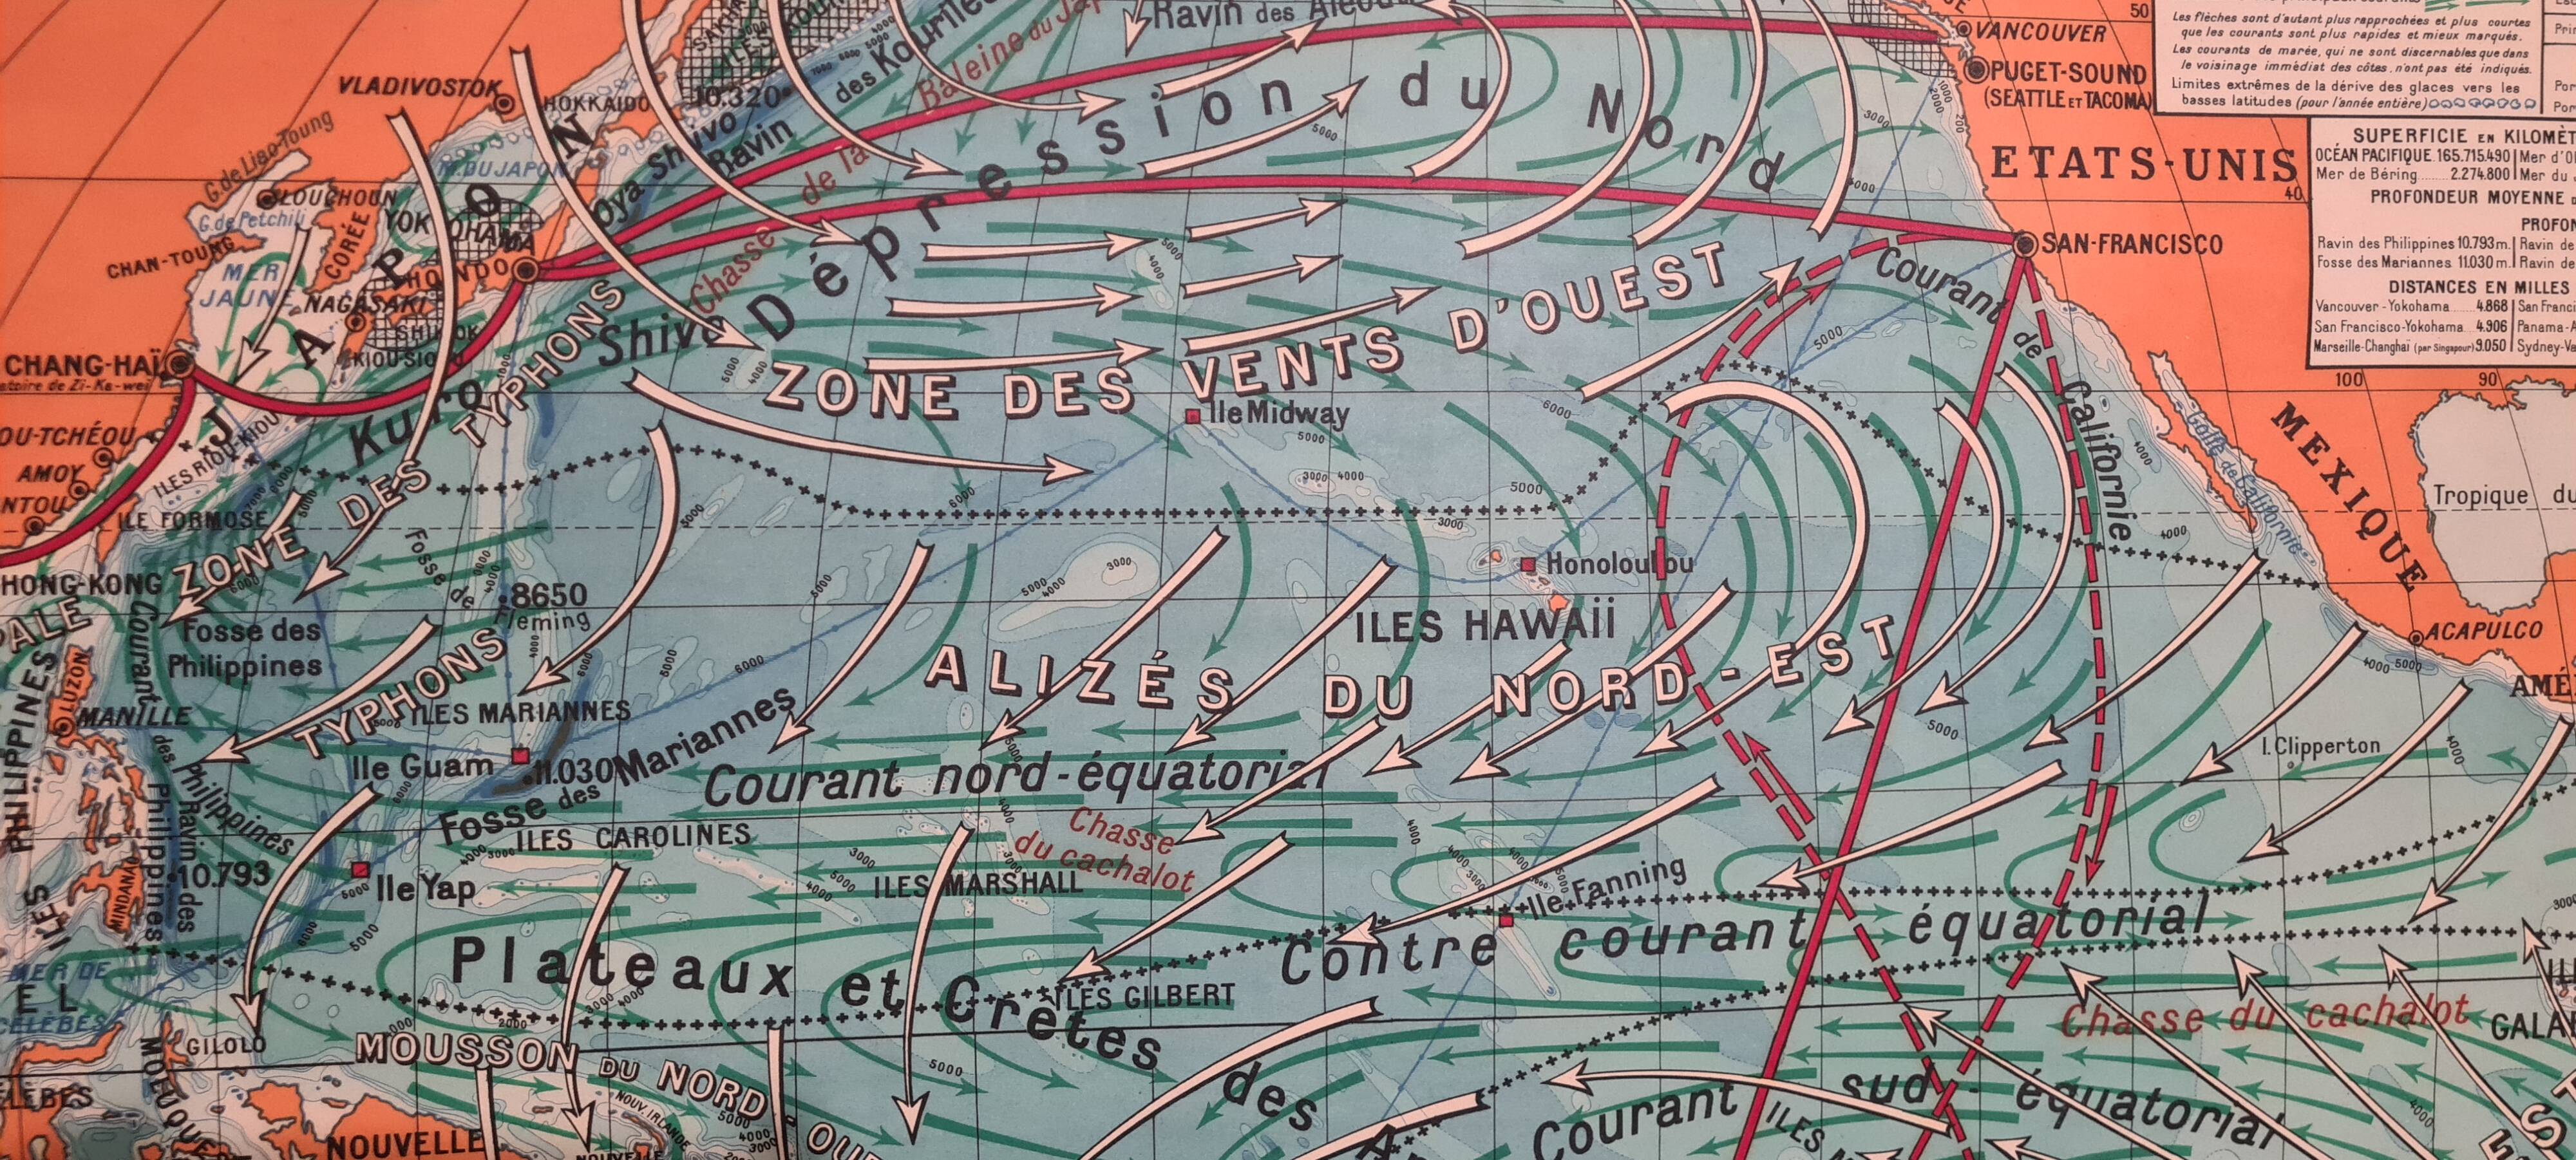 Ravin des
VANCOUVER
PUGET-SOUND
(SEATTLE ET TACOMA)
50
Les flèches sont d'autant plus rapprochées et plus courtes
que les courants sont plus rapides et mieux marqués.
Les courants de marée, qui ne sont discernables que dans
le voisinage immédiat des côtes, n'ont pas été indiqués.
Limites extrêmes de la dérive des glaces vers les
basses latitudes (pour l'année entière)
SUPERFICIE EN
OCÉAN PACIFIQUE 165.715.490
Mer de Béring 2.274.800
PROFONDEUR MOYENNE
Ravin des Philippines 10.793 m. Ravin de
Fosse des Mariannes 11.030 m. Ravin de
DISTANCES EN MILLES
Vancouver-Yokohama 4.868
San Francisco-Yokohama 4.906 Panama-
Marseille-Changhaï (par Singapour) 9.050 Sydney-
ETATS-UNIS
40
SAN-FRANCISCO
100
90
MEXIQUE
Golfe de Californie
Tropique du
ACAPULCO
I. Clipperton
VLADIVOSTOK
HOKKAIDO
des Kouriles
Baleine du
10.320
Ravin
Oya Shivo
G. de Liao-Toung
LOUCHOUN
G. de Petchili
CHAN-TOUNG
CORÉE
M. DU JAPON
JAPON
YOKOHAMA
HONDO
MER
JAUNE
NAGASAKI
KIOU-SIOU
CHANG-HAÏ
AMOY
ILES RIOU-KIOU
ILE FORMOSE
HONG-KONG
Chasse de la
Dépression du Nord
Kuro Shivo
ZONE DES TYPHONS
ZONE DES VENTS D'OUEST
Courant de Californie
Ile Midway
Honoloulou
ILES HAWAÏÏ
Fosse de
8650
Fleming
Fosse des
Philippines
TYPHONS
ALIZÉS DU NORD-EST
LUZON
MANILLE
ILES PHILIPPINES
Courant des Philippines
ILES MARIANNES
Ile Guam
11.030
Fosse des Mariannes
Courant nord-équatorial
Ravin des
Philippines
10.793
MINDANAO
ILES CAROLINES
Ile Yap
Chasse
du cachalot
ILES MARSHALL
Ile Fanning
Contre courant équatorial
Plateaux et Crêtes des
ILES GILBERT
MER DE
CÉLÈBES
GILOLO
MOUSSON DU NORD
Chasse du cachalot
Courant sud-équatorial
ILES
NOUV. IRLANDE
NOUVELLE